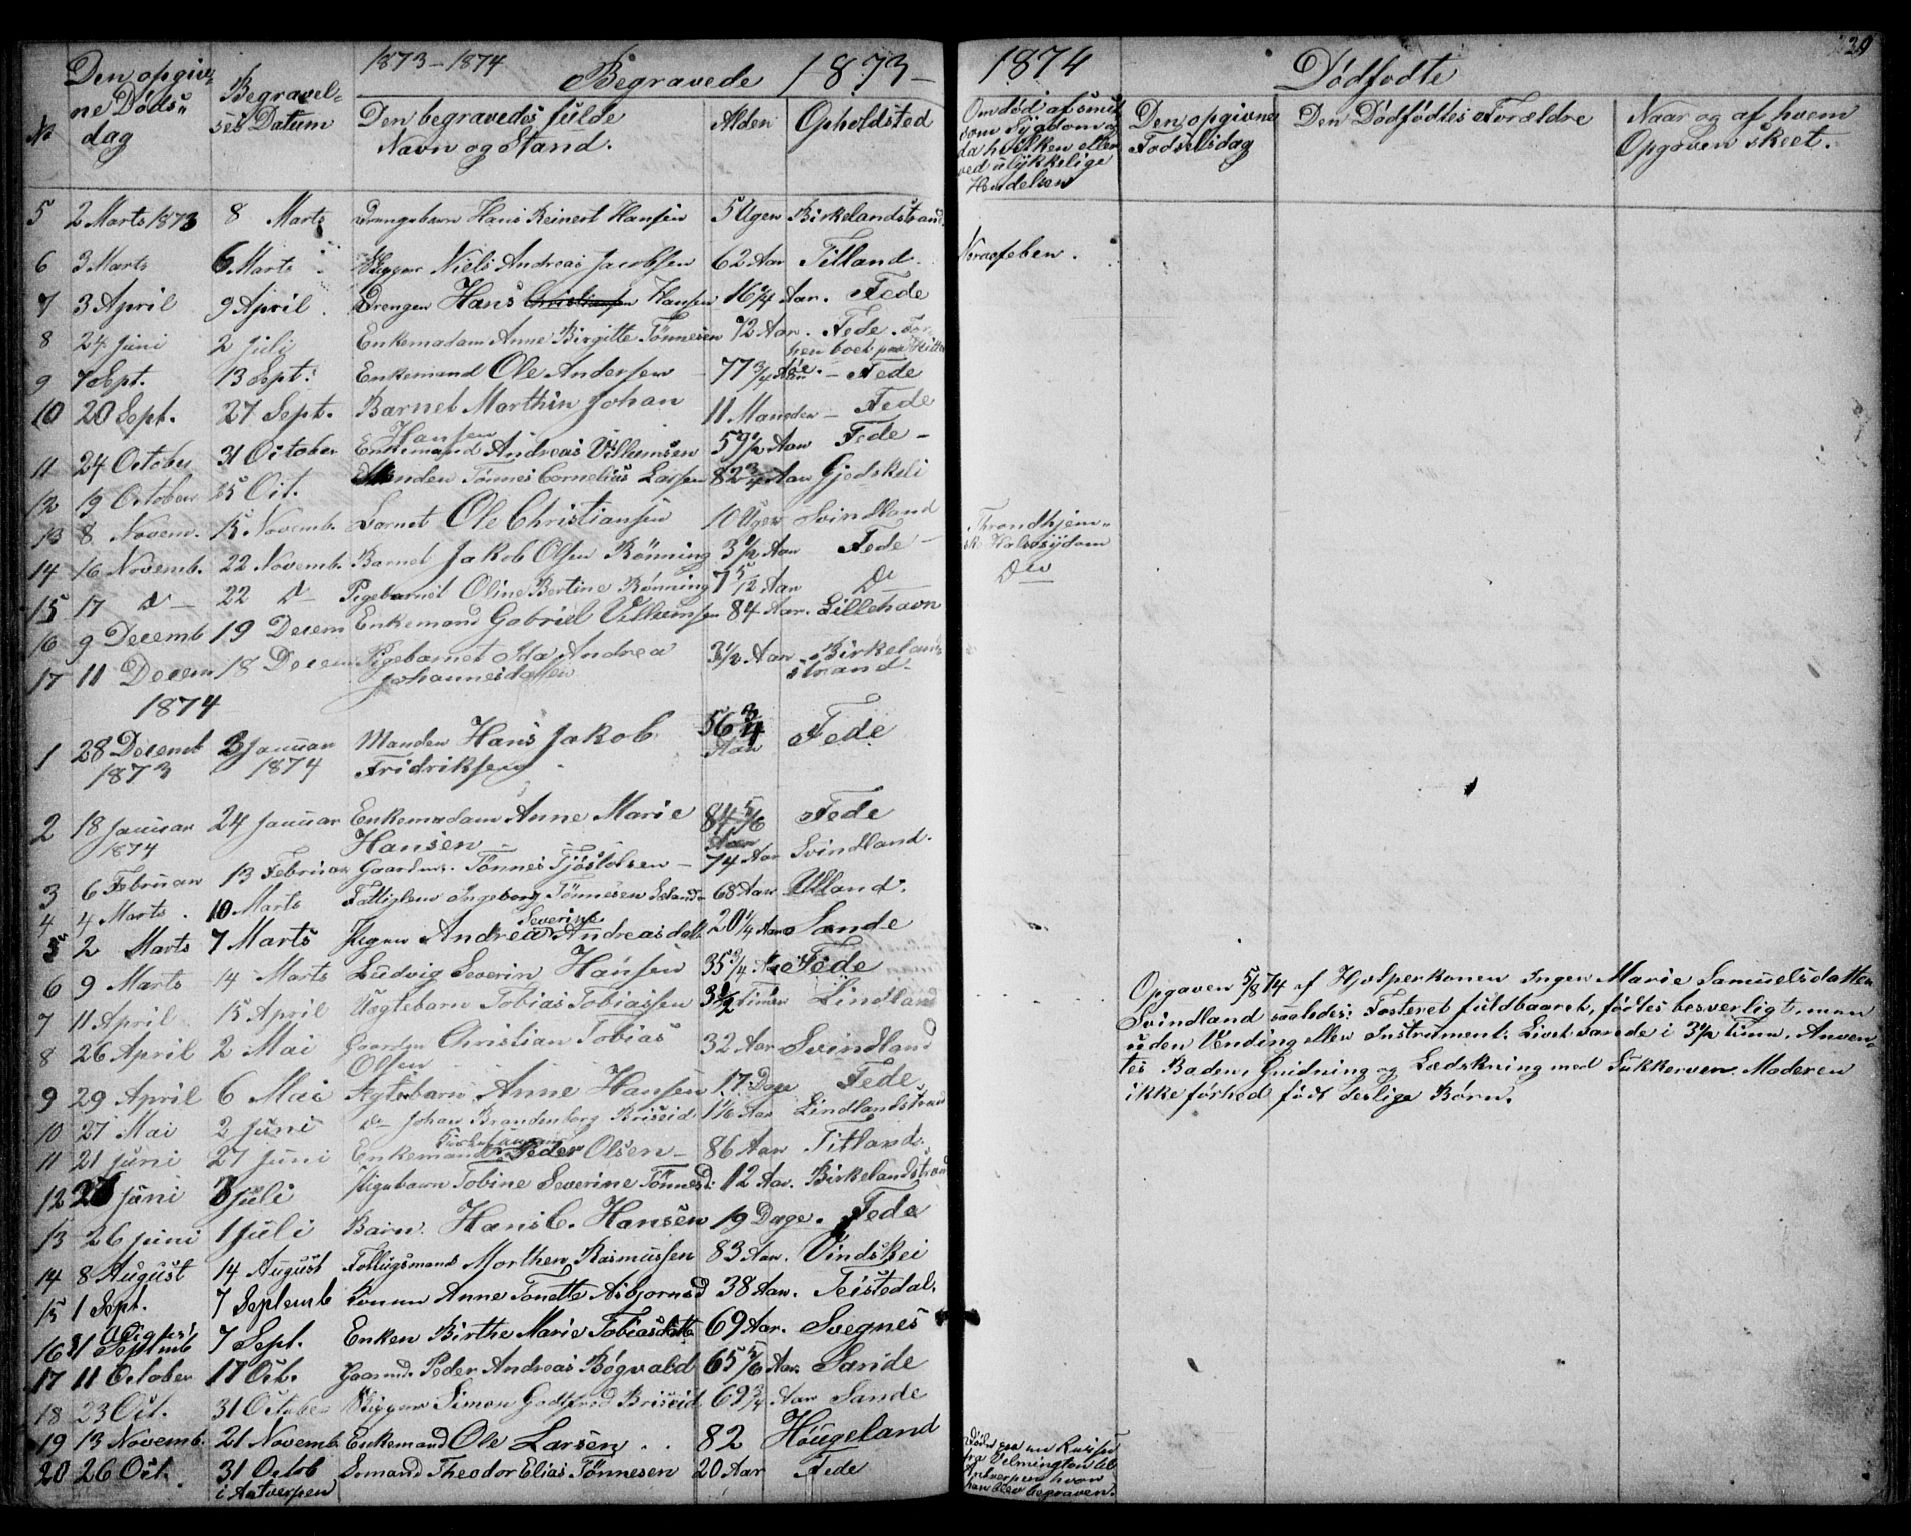 1873-1874 Begravede 1873-
№ Den opgivne Döds-dag Begravel-ses Datum Den begravedes fulde Navn og Stand. Alder Opholdsted
5 2 Marts 1873 8 Marts Drengebarn Hans Reinert Hansen 5 Uger Birkelandstrand
6 3 Marts 6 Marts Niels Andreas Jacobsen 62 Aar Titland.
7 3 April 9 April. Drengen Hans Hansen 16 Aar. Fede
8 24 Juni 2 Juli Enkemadam Anne Birgitte Tönnesen 72 Aar. Fede.
9 7 Sept. 13 Sept. Enkemand Ole Andersen 77 3/4 Aar - Fede
10 20 Sept. 27 Sept. Barnet Marthin Johan
Hansen 11 Maneder - Fede
11 24 October 31 October Enkemand Andreas Vilhumsen 59 1/2 Aar Fede -
12 19 October 25 Oct. Manden Tönnes Cornelius Larsen 82 3/4 Aar Gjedskeli
13 8 Novem. 15 Novemb. Barnet Ole Christiansen 10 Uger Svindland
14 16 Novemb. 22 Novemb. Barnet Jakob Olsen Rönning 3 1/2 Aar Fede -
15 17 D- 22 D- Pigebarnet Oline Bertine Rönning 7 5/12 Aar Do
16 9 Decemb 19 Decem Enkemand Gabriel Vilhumsen 84 Aar. Lillehavn
17 11 Decem 18 Decem Pigebarnet Ida Andrea
Johannesdatten 3 1/2 Aar Birkeland-strand-
1874
1 28 Decemb 1873 3 Januar 1874 Manden Hans Jakob
Fridriksen 56 3/4 Aar Fede
2 18 Januar 1874 24 Januar Enkemadam Anne Marie
Hansen 84 5/6 Aar Fede
3 6 Februar 13 Februar Gaardm. Tönnes Tjöstolsen - 74 Aar Svindland.
4 4 Marts. 10 Marts Fattiglem Ingeborg Tönnesen 68 Aar Ulland.
5 2 Marts 7 Marts Pigen Andrea Severine Andreasdatt. 20 1/4 Aar Sande
6 9 Marts 14 Marts Ludvig Severin Hansen 35 3/4 Aar Fede
7 11 April 15 April Ægtebarn Tobias Tobiassen 3 1/2 Timer Lindland
8 26 April 2 Mai Gaardm Christian Tobias
Olsen 32 Aar Svindland
9 29 April 6 Mai Ægtebarn Anne Hansen 17 Dage Fede
10 27 Mai 2 Juni Do Johan Brandenborg Briseid 1 1/6 Aar Lindlandstrand
11 21 Juni 27 Juni Enkemand Peder Olsen - 86 Aar Titland.
12 Juni Juli Pigebarn Tobine Severine Tönnesd. 12 Aar. Birkelandstrand
13 26 Juni 1 Juli Barn. Hans C. Hansen 19 Dage. Fede
14 8 August 14 August Morthen Rasmussen 83 Aar. Vindskei
15 1 Sept. 7 Septemb Konen Anne Tonette Asbjornsd 38 Aar. Teistedal.
16 31 August 7 Sept. Enken Birthe Marie Tobiasdatter 69 Aar. Svegnes
17 11 October 17 Oct. Gaardm. Peder Andreas Bögvald 65 5/6 Aar. Sande
18 23 Oct. 31 October Simon Godtfred Briseid 69 3/4 Aar Sande
19 13 Novemb. 21 Novemb. Enkemand Ole Larsen .. 82 Höugeland
20 26 Oct. 31 Octob
i Antverpen Sömand Theodor Elias Tönnesen 20 Aar Fede
1874 Dødfødte
Om död af smitsom Sygdom og
da hvilken eller
ved ulykkelige
Hendelser
Den opgivne
Fødselsdag
Den Dødfødtes Forældre
Naar og af hvem
Opgaven skeet.
Nervefeber.
Throndhjem-
ske Halssydom
Do
Opgaven 5/8 74 af Hjelperkonen Inger Marie Samuelsdatter
Svindland saaledes: Fosteret fuldbaaret, födtes besverligt, men
uden Vending eller Instrument. Livet varede i 3 1/2 Time. Anven-
tes Baden, Gnidning og Lædskning med Sukkervæn. Moderen
ikke forhed født deslige Børn.
Döde paa en Reise
fra Velmington til
Antverpen hvor
han blev begraven.